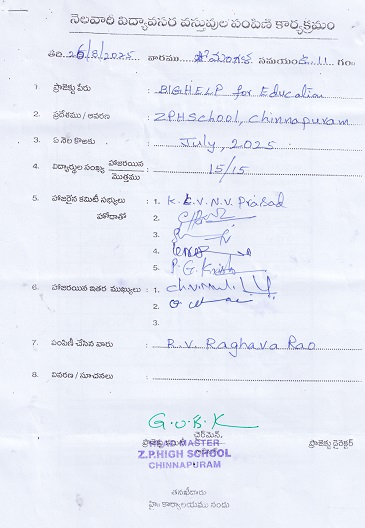 నెలవారీ విద్యావసర వస్తువుల పంపిణి కార్యక్రమం
తేది 26/8/2025 వారము మంగళ సమయం 11 గం
1 ప్రాజెక్టు పేరు : BIGHELP for Education
2. ప్రదేశము / ఆవరణ : ZPHSchool, Chinnapuram
3. ఏ నెల కొఱకు : July, 2025
4. విద్యార్థుల సంఖ్య హాజరయిన / మొత్తము : 15/15
5. హాజరైన కమిటీ సభ్యులు : 1. K.E.V.N.V. Prasad
హోదాతో 2.
3.
4.
5. P.G.
6. హాజరయిన ఇతర ముఖ్యులు : 1.
2.
3.
7. పంపిణీ చేసిన వారు : R.V. Raghava Rao
8. వివరణ / సూచనలు :
G.O.B.K
ఛైర్మెన్,
ప్రాజెక్టు కమిటీ ప్రాజెక్టు డైరెక్టర్
MASTER
Z.P.HIGH SCHOOL
CHINNAPURAM
తనఖీదారు
హై కార్యాలయము నందు